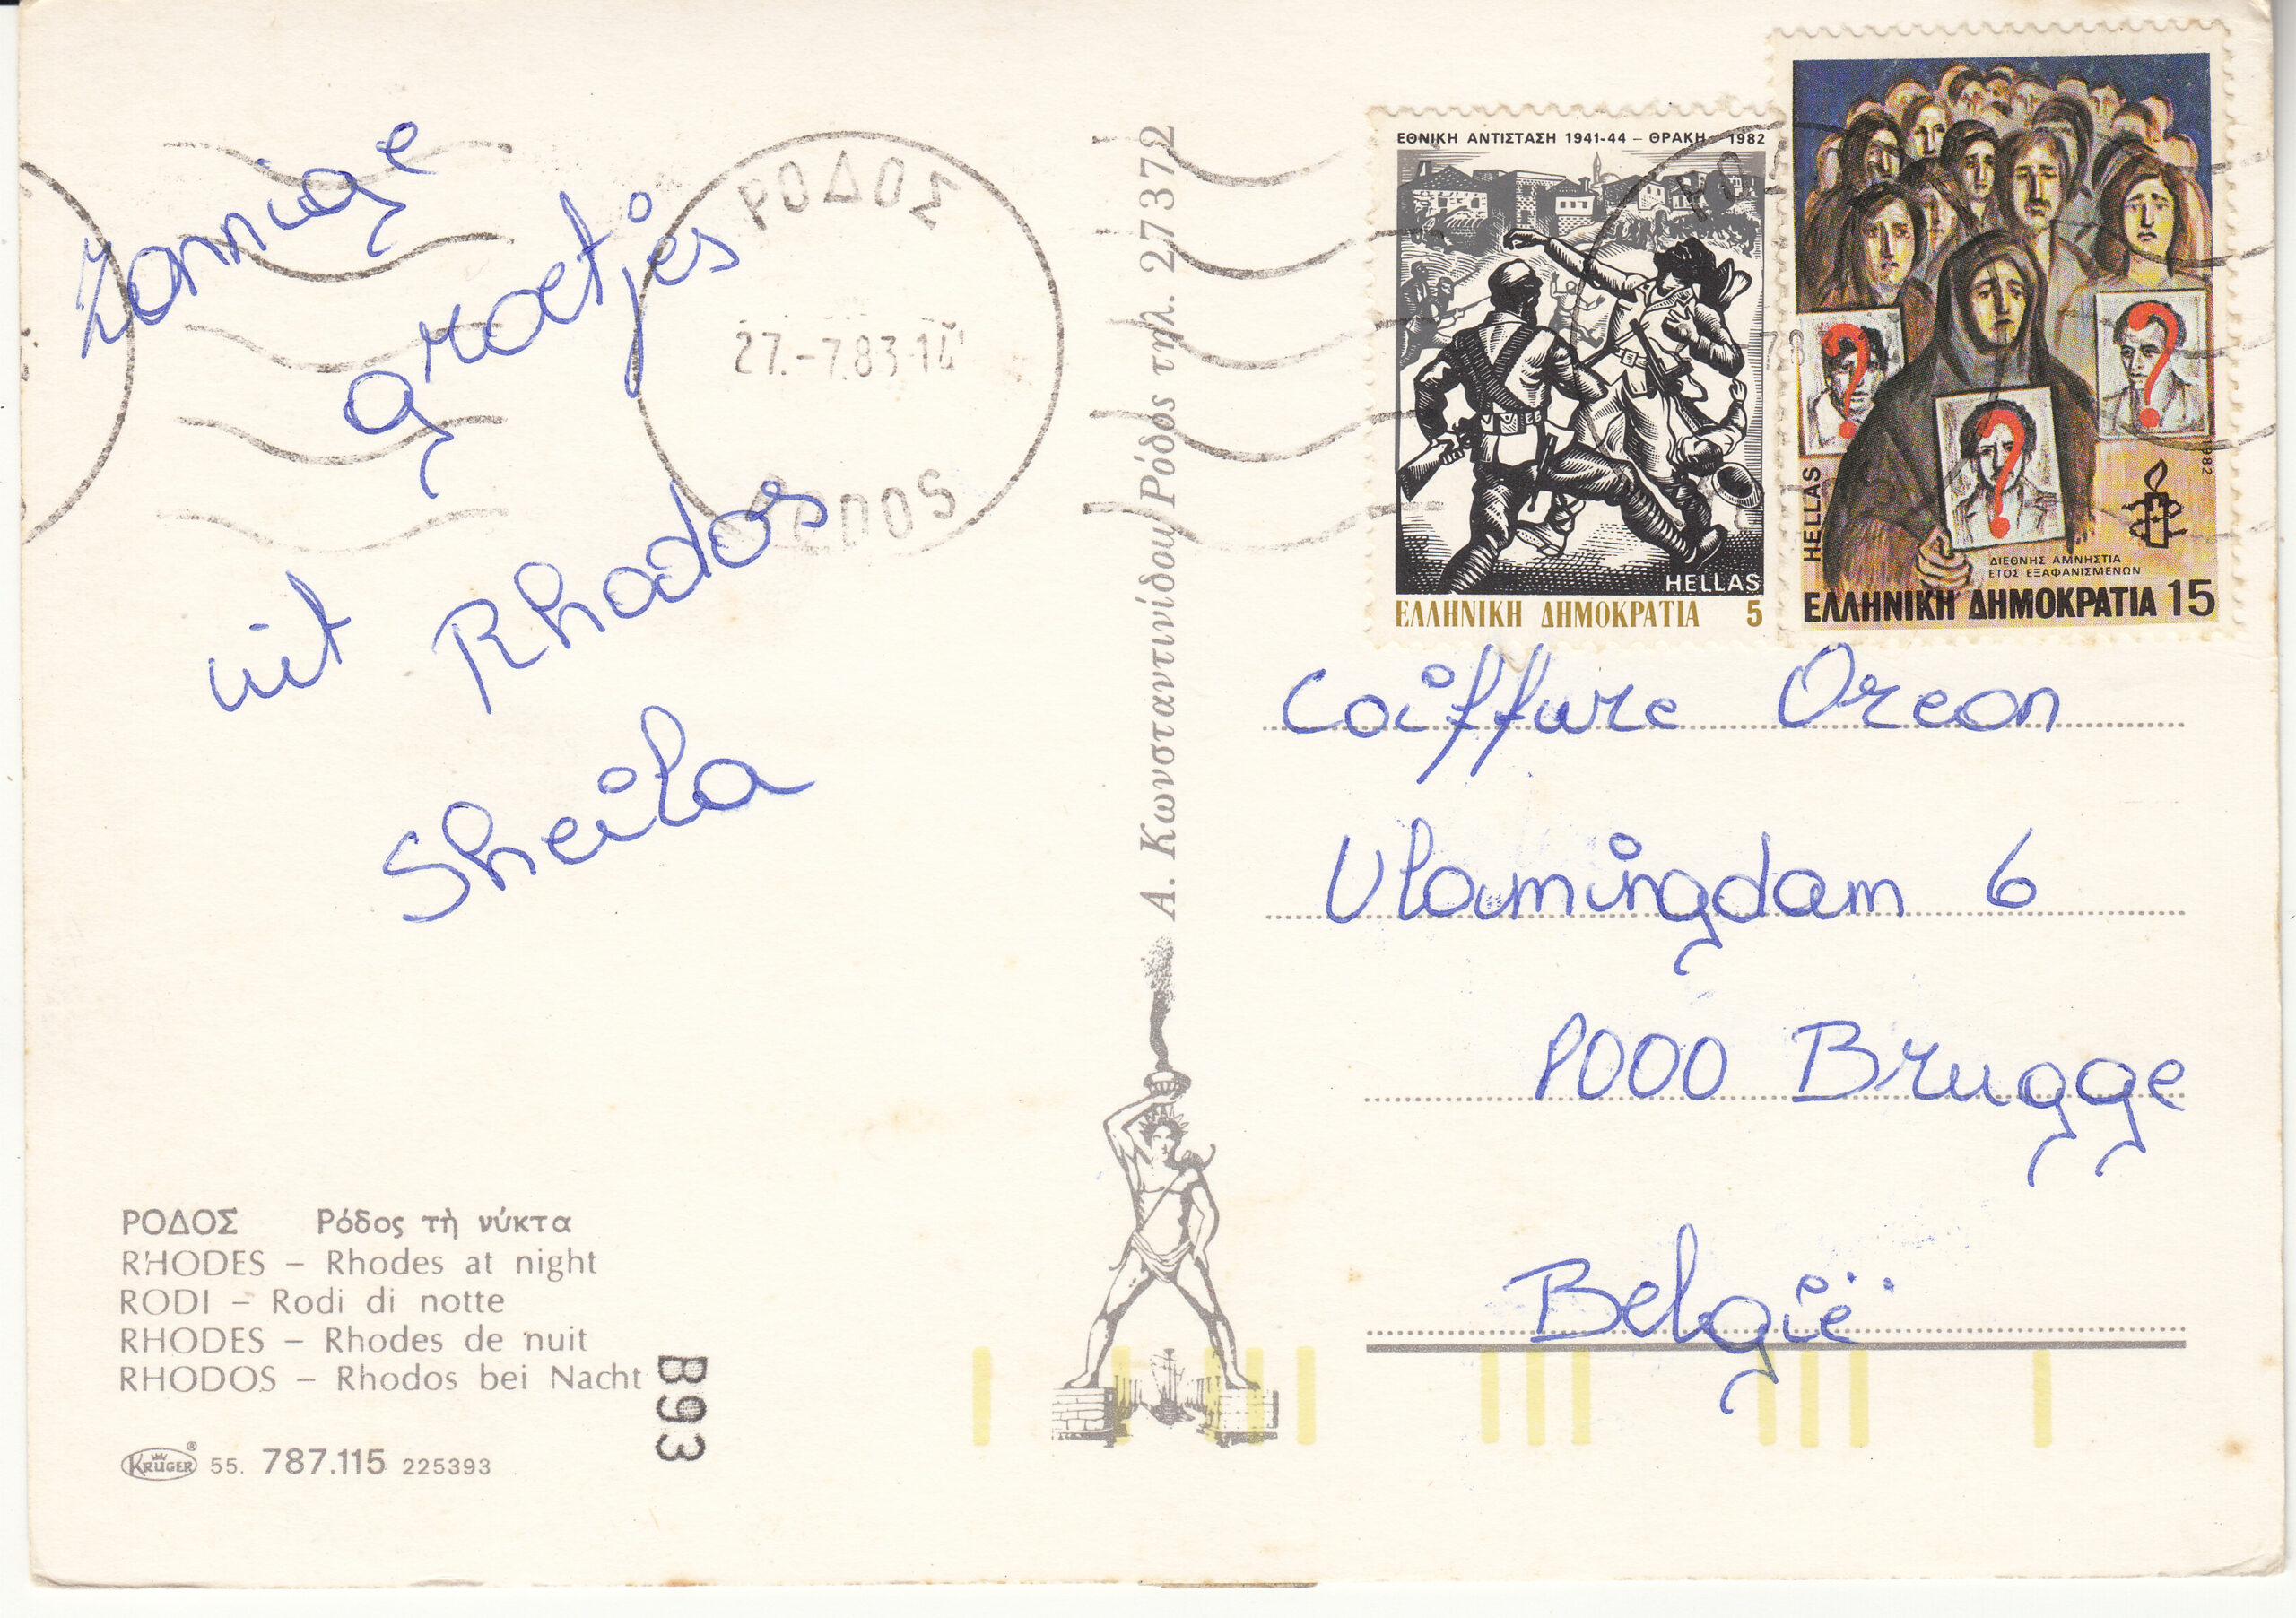 zonnige
groetjes
uit Rhodos
Sheila
ΡΟΔΟΣ
27.-7.83-14
RODOS
ΡΟΔΟΣ Ρόδος τὴ νύκτα
RHODES – Rhodes at night
RODI – Rodi di notte
RHODES – Rhodes de nuit
RHODOS – Rhodos bei Nacht
KRÜGER ® 55. 787.115 225393
893
Α. Κωνσταντινίδου Ρόδος τηλ. 27372
ΕΘΝΙΚΗ ΑΝΤΙΣΤΑΣΗ 1941-44 – ΘΡΑΚΗ 1982
HELLAS
ΕΛΛΗΝΙΚΗ ΔΗΜΟΚΡΑΤΙΑ 5
HELLAS
1982
ΔΙΕΘΝΗΣ ΑΜΝΗΣΤΙΑ
ΕΤΟΣ ΕΞΑΦΑΝΙΣΜΕΝΩΝ
ΕΛΛΗΝΙΚΗ ΔΗΜΟΚΡΑΤΙΑ 15
Coiffure Oreon
Vlamingdam 6
8000 Brugge
België